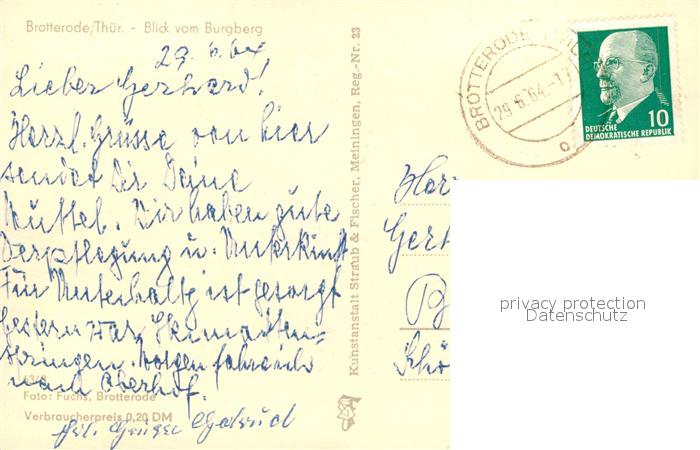 Brotterode/Thür. - Blick vom Burgberg
29.6.64
Lieber Gerhard!
Herzl. Grüsse von hier
sendet Dir Deine
Muttel. Wir haben gute
Verpflegung u. Unterkunft
Für Unterhaltg ist gesorgt
Gestern war Heimat
springen. Morgen fahren
nach Oberhof.
Foto: Fuchs, Brotterode
Verbraucherpreis 0,20 DM
Kunstanstalt Straub & Fischer, Meiningen, Reg.-Nr. 23
BROTTERODE
29.6.64-17
c
10
DEUTSCHE
DEMOKRATISCHE REPUBLIK
Her
Gerh
B
privacy protection
Datenschutz